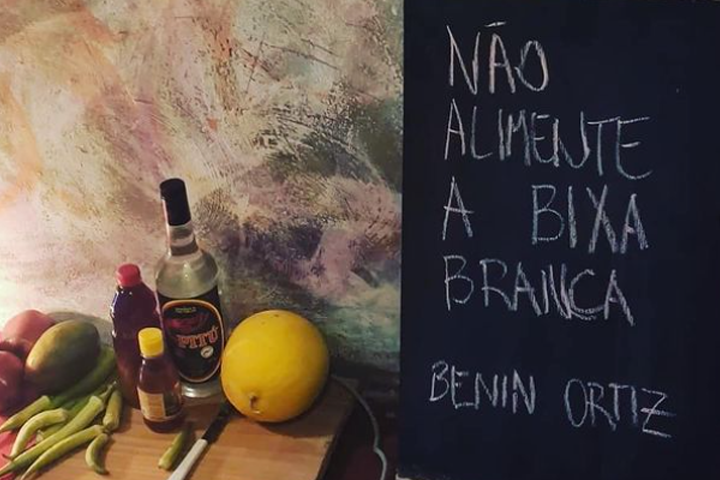 NÃO
ALIMENTE
A BIXA
BRANCA
BENIN ORTIZ
PITÚ